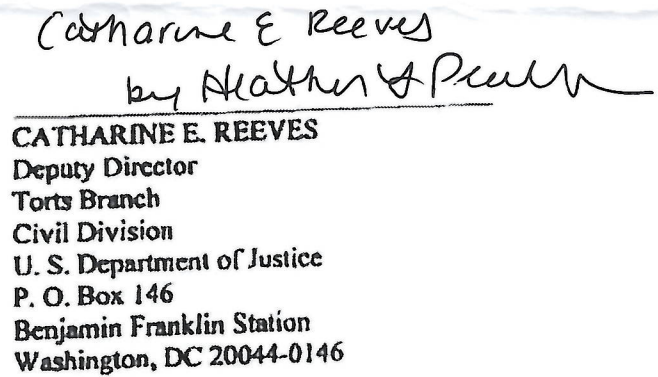 Catharine E Reeves
by Heather L
CATHARINE E. REEVES
Deputy Director
Torts Branch
Civil Division
U. S. Department of Justice
P. O. Box 146
Benjamin Franklin Station
Washington, DC 20044-0146